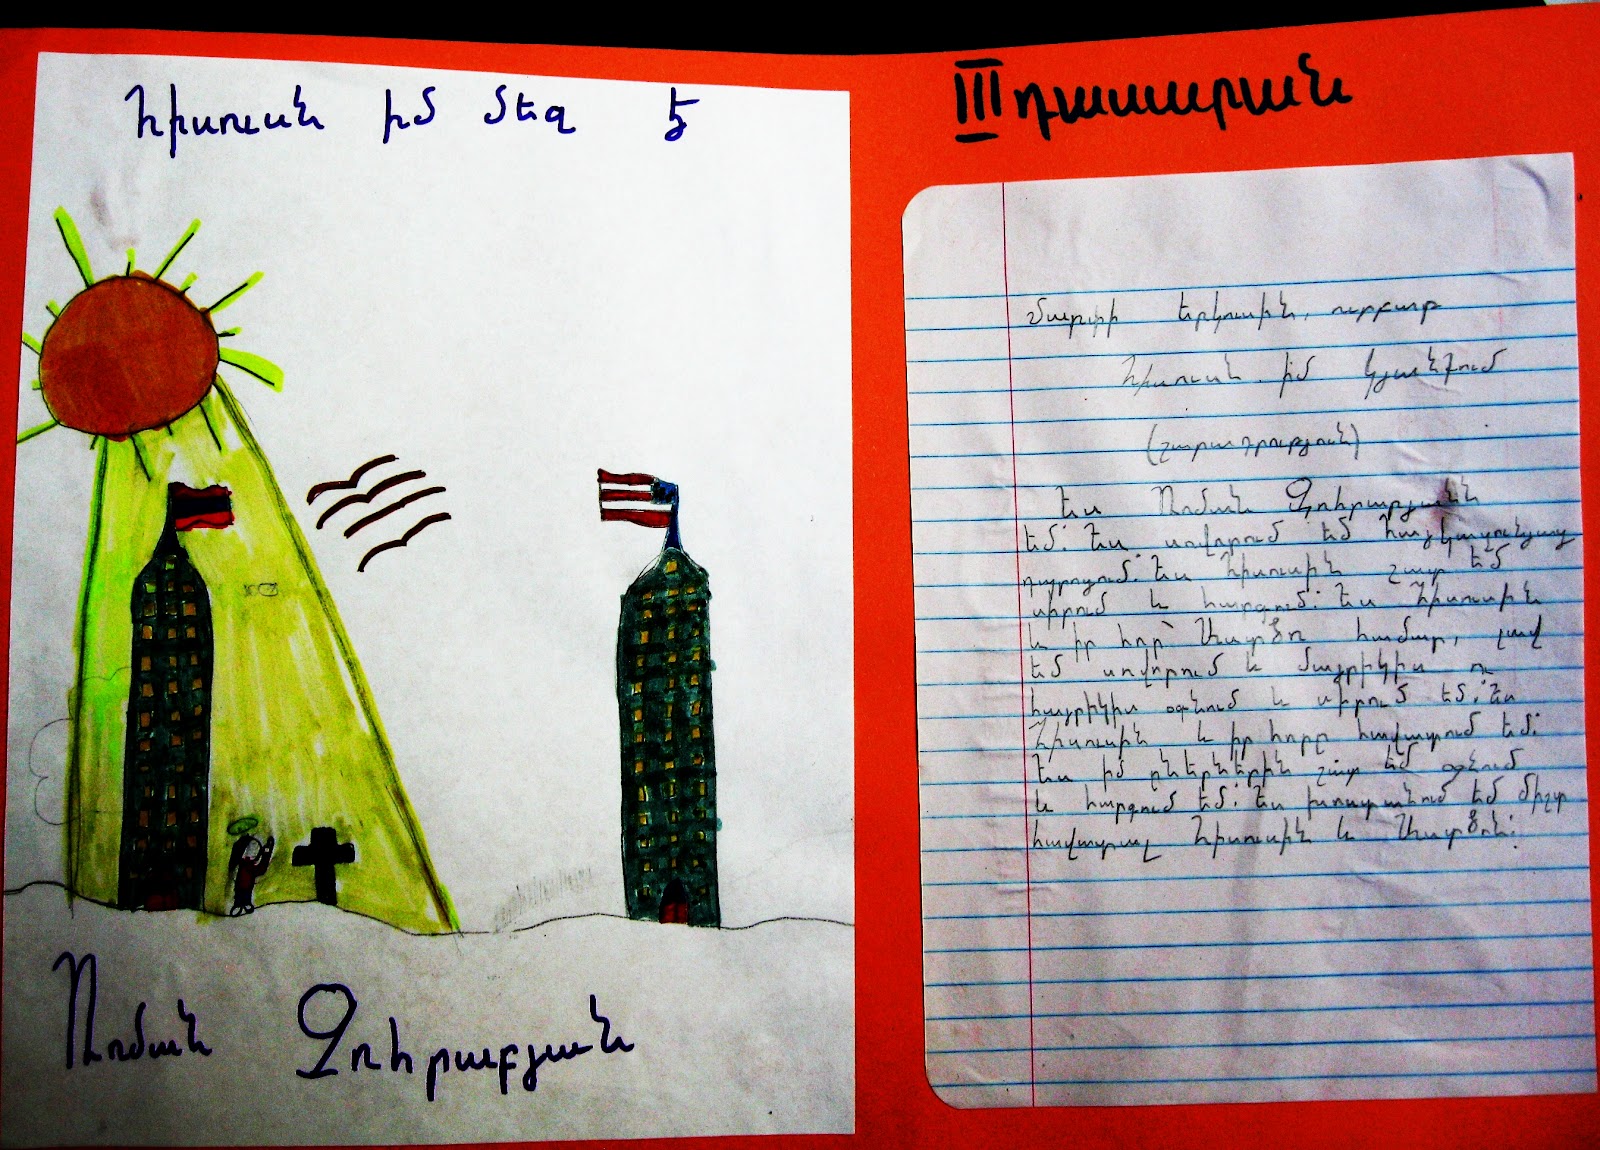 Հիսուսն իմ մեզ է
Ռոման Զոհրաբյան
III դասարան
Մարտի երկուսին, ուրբաթ
Հիսուսն իմ կյանքում
(շարադրություն)
Ես Ռոման Զոհրաբյանն
եմ: Ես սովորում եմ
դպրոցում: Ես Հիսուսին շատ եմ
սիրում և հարգում: Ես Հիսուսին
և իր հոր՝ Աստծո համար, լավ
եմ սովորում և մայրիկիս ու
հայրիկիս օգնում և սիրում եմ: Ես
Հիսուսին և իր հորը հավատում եմ:
Ես իմ ընկերներին շատ եմ օգնում
և հարգում եմ: Ես խոստանում եմ միշտ
հավատալ Հիսուսին և Աստծոն: